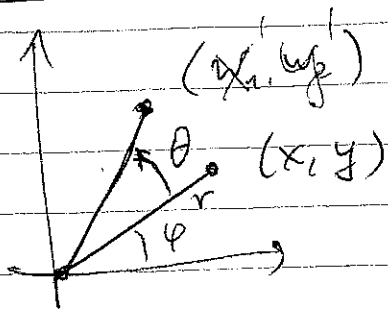 (x', y')
θ (x, y)
r
φ